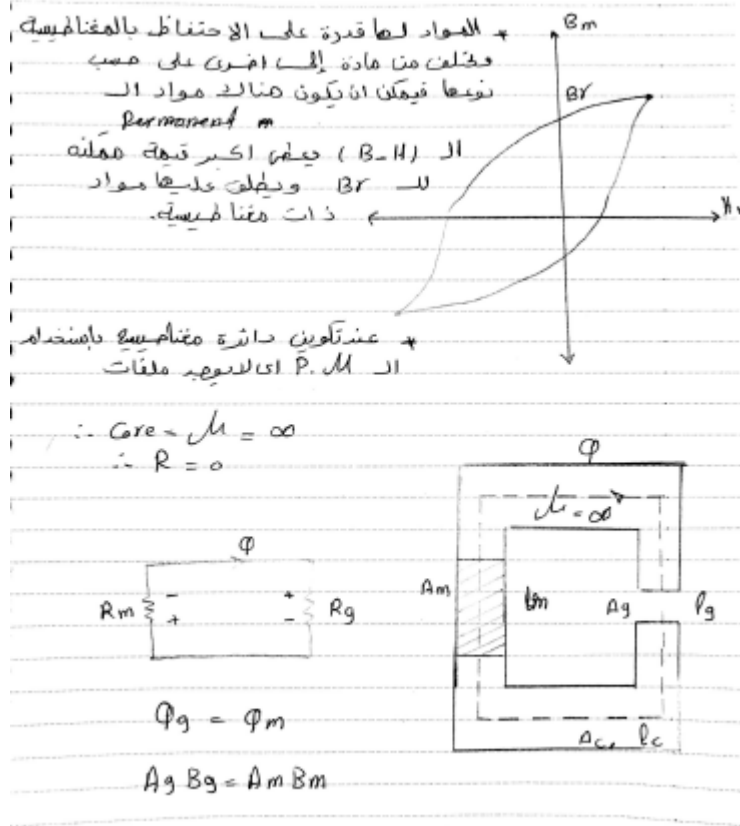 * المواد لها قدرة على الاحتفاظ بالمغناطيسية
وتختلف من مادة إلى اخرى على حسب
نوعها فيمكن ان تكون هناك مواد الـ
Permanend m
الـ (B-H) يعطى اكبر قيمة ممكنه
للـ Br ويطلق عليها مواد
ذات مغناطيسية.
Bm
Br
H
* عند تكوين دائرة مغناطيسية باستخدام
الـ P.M اى لا يوجد ملفات
∴ Core - μ = ∞
∴ R = 0
φ
Rm - + + - Rg
φ
μ = ∞
Am lm Ag lg
Ac, lc
φg = φm
Ag Bg = Am Bm